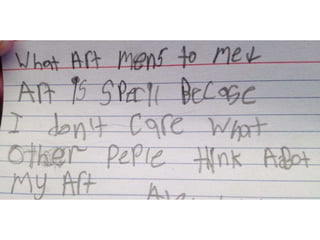 What Art mens to met
Art is Specil Becose
I don't Care What
Other Peple think Abot
My Art